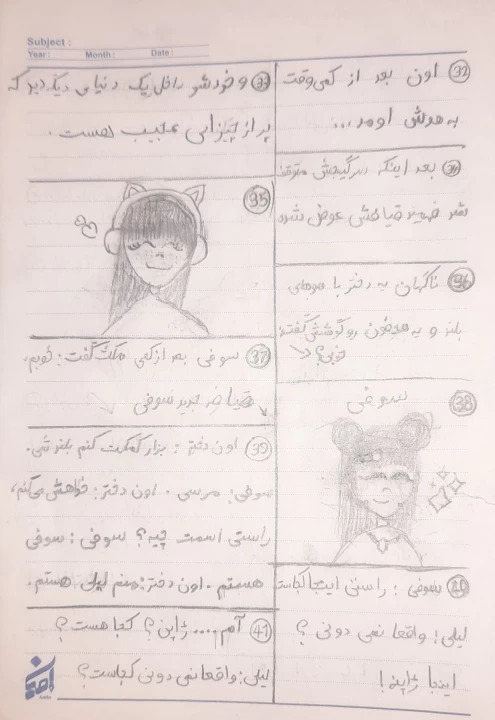 Subject :
Year : Month : Date :
32 اون بعد از کمی وقت
به هوش اومد...
33 و خودشو داخل یک دنیای دیگر دید که
پر از چیزای عجیب هست.
34 بعد اینکه سرگیجش متوقف
شد فهمید قیافش عوض شده
35
36 ناگهان یه دختر با موهای
بلند و یه هدفون رو گوشش گفت:
خوبی؟
37 سوفی بعد از کمی مکث گفت: خوبم.
قیافه جدید سوفی
38
سوفی
39 اون دختر: بزار کمکت کنم بلند شی.
سوفی: مرسی. اون دختر: خواهش میکنم،
راستی اسمت چیه؟ سوفی: سوفی
هستم. اون دختر: منم لیلی هستم.
40 سوفی: راستی اینجا کجاست
لیلی: واقعا نمی دونی؟
اینجا ژاپنه!
41 آم.... ژاپن؟ کجا هست؟
لیلی: واقعا نمی دونی کجاست؟